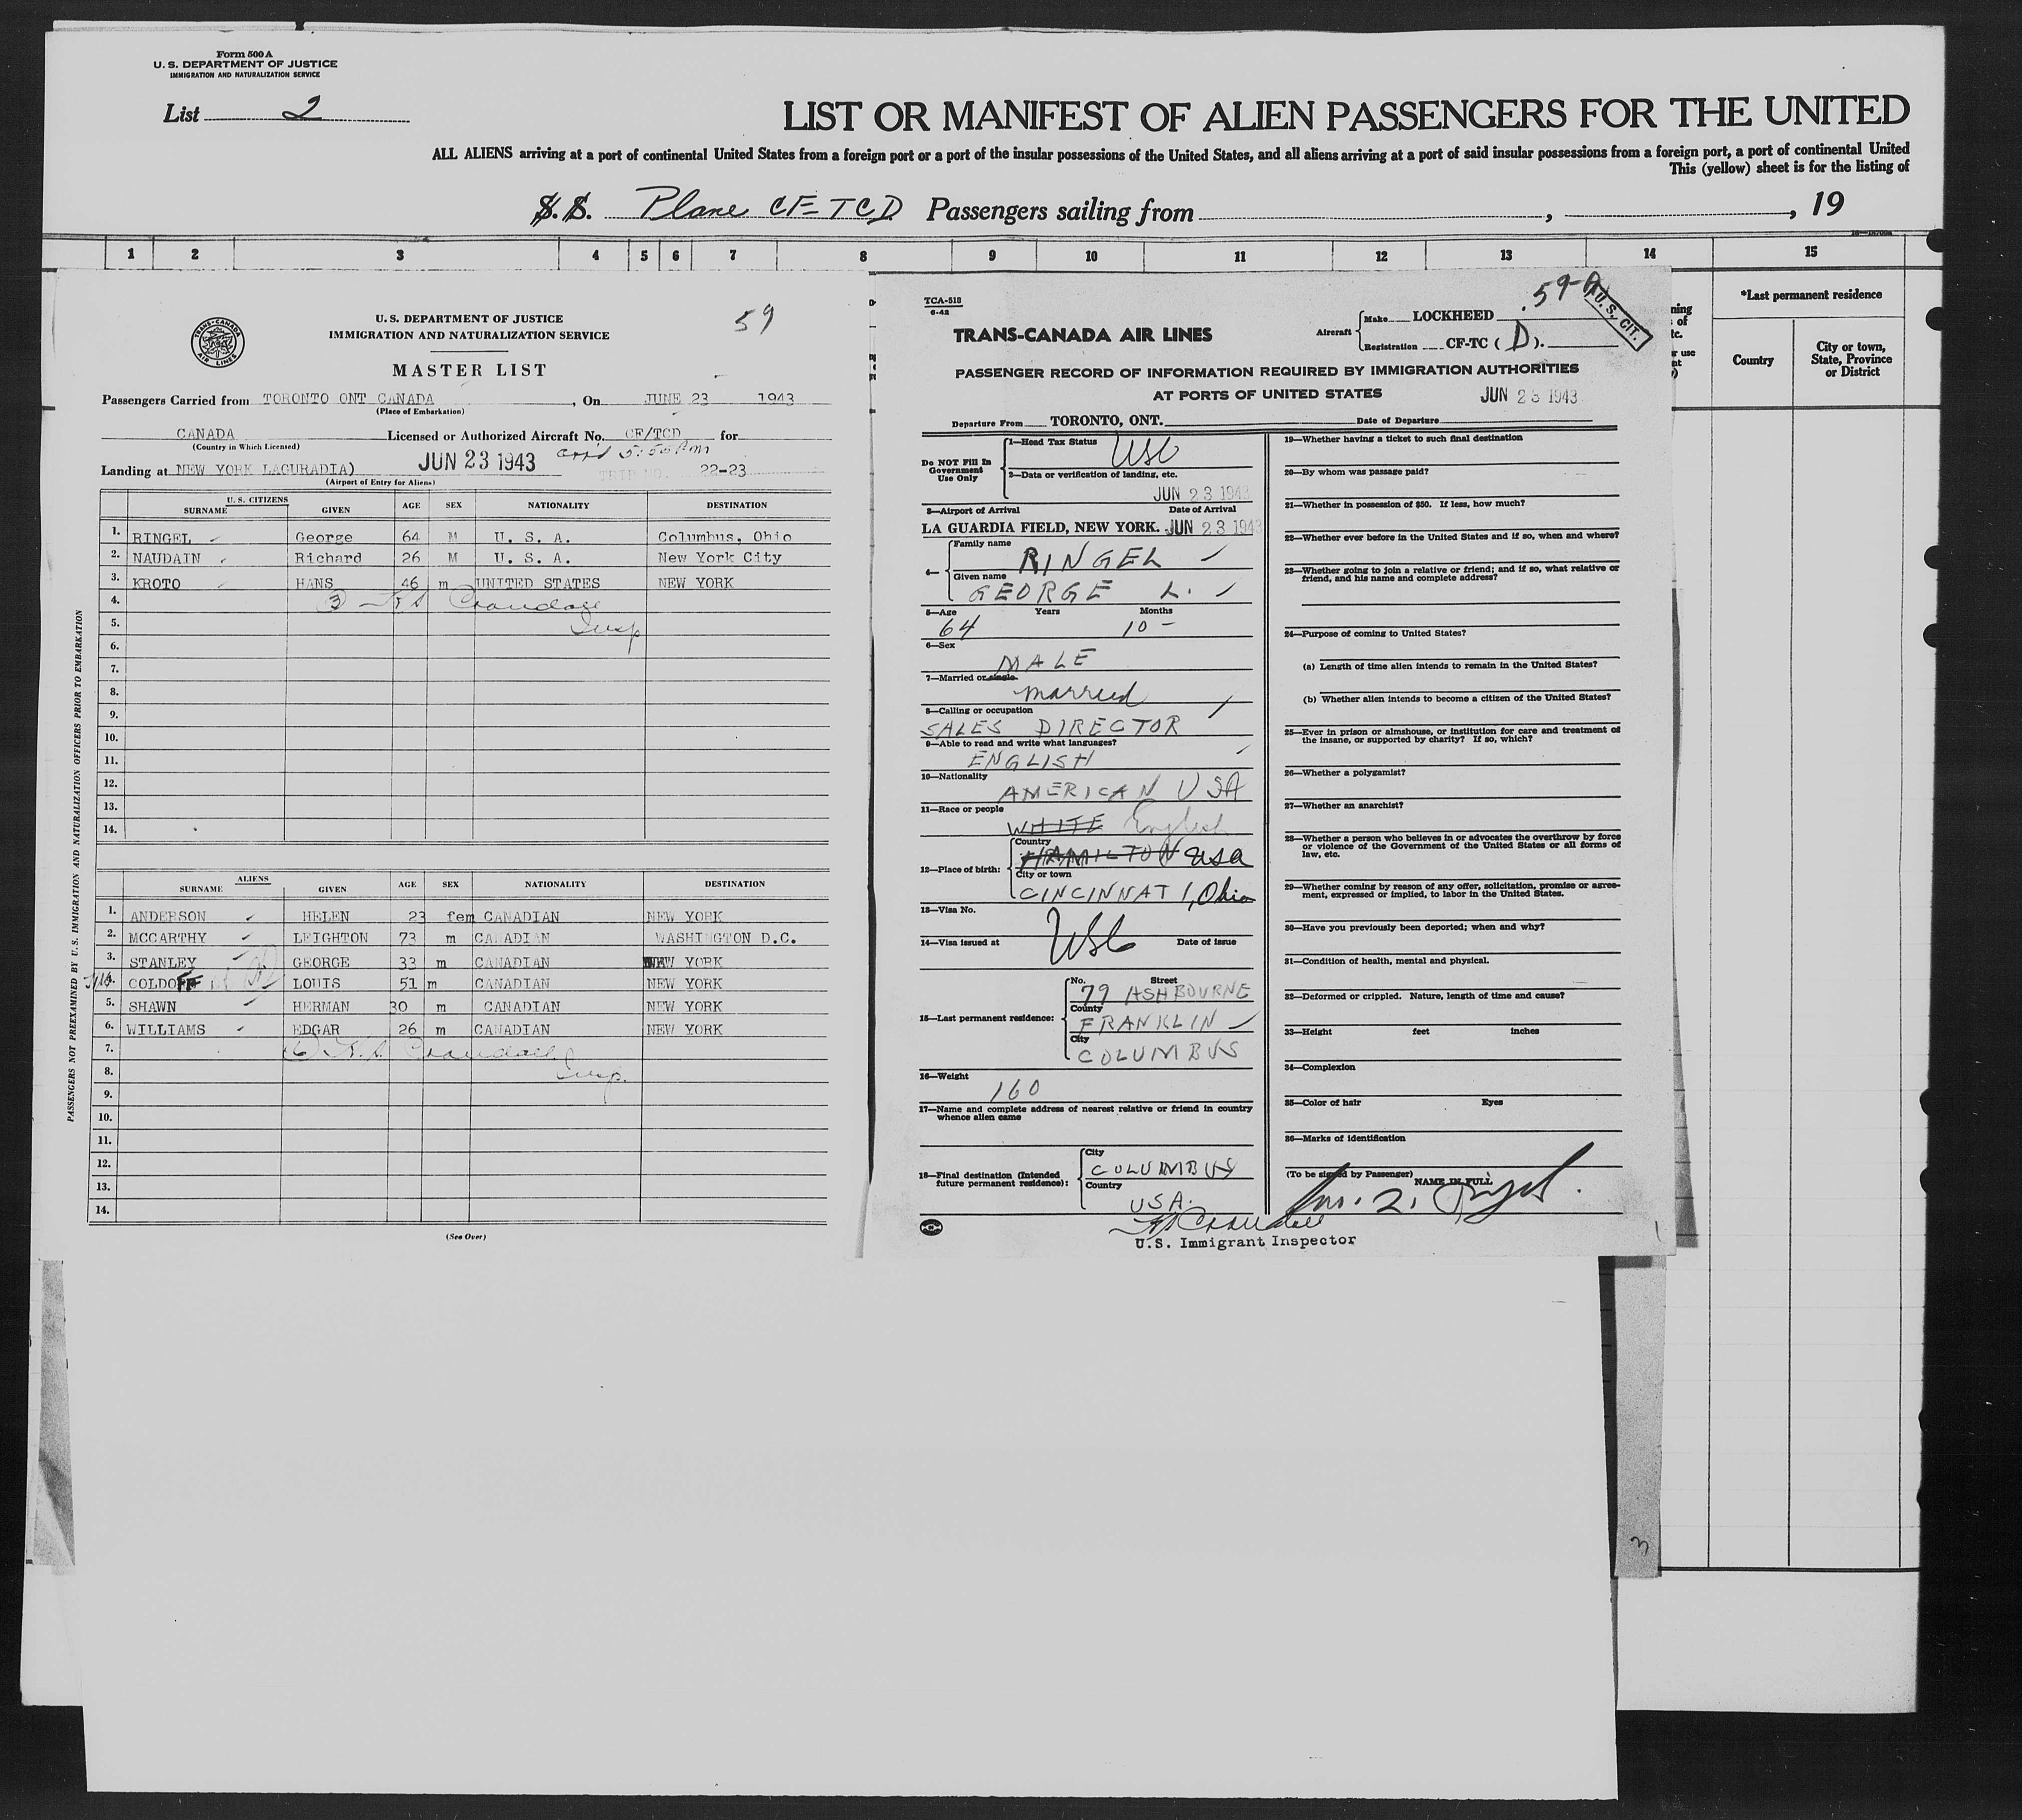 Form 500 A
U. S. DEPARTMENT OF JUSTICE
IMMIGRATION AND NATURALIZATION SERVICE
List 2
LIST OR MANIFEST OF ALIEN PASSENGERS FOR THE UNITED
ALL ALIENS arriving at a port of continental United States from a foreign port or a port of the insular possessions of the United States, and all aliens arriving at a port of said insular possessions from a foreign port, a port of continental United
This (yellow) sheet is for the listing of
S. S. Plane CF-TCD Passengers sailing from , , 19
1 2 3 4 5 6 7 8 9 10 11 12 13 14 15
*Last permanent residence
Country
City or town, State, Province or District
59
U. S. DEPARTMENT OF JUSTICE
IMMIGRATION AND NATURALIZATION SERVICE
TRANS-CANADA AIR LINES
MASTER LIST
Passengers Carried from TORONTO ONT CANADA , On JUNE 23 1943
(Place of Embarkation)
CANADA Licensed or Authorized Aircraft No. CF/TCD for
(Country in Which Licensed)
JUN 23 1943 arrd 5:55 Pm
Landing at NEW YORK LAGURADIA) TRIP NO. 22-23
(Airport of Entry for Aliens)
U. S. CITIZENS
SURNAME GIVEN AGE SEX NATIONALITY DESTINATION
1. RINGEL George 64 M U. S. A. Columbus, Ohio
2. NAUDAIN Richard 26 M U. S. A. New York City
3. KROTO HANS 46 m UNITED STATES NEW YORK
4. 3 Crandall
5. Insp
6.
7.
8.
9.
10.
11.
12.
13.
14.
ALIENS
SURNAME GIVEN AGE SEX NATIONALITY DESTINATION
1. ANDERSON HELEN 23 fem CANADIAN NEW YORK
2. MCCARTHY LEIGHTON 73 m CANADIAN WASHINGTON D.C.
3. STANLEY GEORGE 33 m CANADIAN NEW YORK
4. COLDOFF LOUIS 51 m CANADIAN NEW YORK
5. SHAWN HERMAN 30 m CANADIAN NEW YORK
6. WILLIAMS EDGAR 26 m CANADIAN NEW YORK
7. 6 Crandall
8. Insp.
9.
10.
11.
12.
13.
14.
(See Over)
PASSENGERS NOT PREEXAMINED BY U.S. IMMIGRATION AND NATURALIZATION OFFICERS PRIOR TO EMBARKATION
TCA-518
6-42
59-A
U.S. CIT.
TRANS-CANADA AIR LINES
Aircraft
Make LOCKHEED
Registration CF-TC ( D ).
PASSENGER RECORD OF INFORMATION REQUIRED BY IMMIGRATION AUTHORITIES
AT PORTS OF UNITED STATES JUN 23 1943
Departure From TORONTO, ONT. Date of Departure
Do NOT Fill In Government Use Only
1—Head Tax Status USC
2—Data or verification of landing, etc.
JUN 23 1943
3—Airport of Arrival Date of Arrival
LA GUARDIA FIELD, NEW YORK. JUN 23 1943
4— Family name RINGEL
Given name GEORGE L.
5—Age Years Months
64 10
6—Sex
MALE
7—Married or single
married
8—Calling or occupation
SALES DIRECTOR
9—Able to read and write what languages?
ENGLISH
10—Nationality
AMERICAN USA
11—Race or people
WHITE English
12—Place of birth:
Country
HAMILTON USA
City or town
CINCINNATI, Ohio
13—Visa No.
USC
14—Visa issued at Date of issue
15—Last permanent residence:
No. Street
79 ASHBOURNE
County
FRANKLIN
City
COLUMBUS
16—Weight
160
17—Name and complete address of nearest relative or friend in country
whence alien came
18—Final destination (Intended future permanent residence):
City
COLUMBUS
Country
USA.
19—Whether having a ticket to such final destination
20—By whom was passage paid?
21—Whether in possession of $50. If less, how much?
22—Whether ever before in the United States and if so, when and where?
23—Whether going to join a relative or friend; and if so, what relative or
friend, and his name and complete address?
24—Purpose of coming to United States?
(a) Length of time alien intends to remain in the United States?
(b) Whether alien intends to become a citizen of the United States?
25—Ever in prison or almshouse, or institution for care and treatment of
the insane, or supported by charity? If so, which?
26—Whether a polygamist?
27—Whether an anarchist?
28—Whether a person who believes in or advocates the overthrow by force
or violence of the Government of the United States or all forms of
law, etc.
29—Whether coming by reason of any offer, solicitation, promise or agree-
ment, expressed or implied, to labor in the United States.
30—Have you previously been deported; when and why?
31—Condition of health, mental and physical.
32—Deformed or crippled. Nature, length of time and cause?
33—Height feet inches
34—Complexion
35—Color of hair Eyes
36—Marks of identification
(To be signed by Passenger) NAME IN FULL
U.S. Immigrant Inspector
3